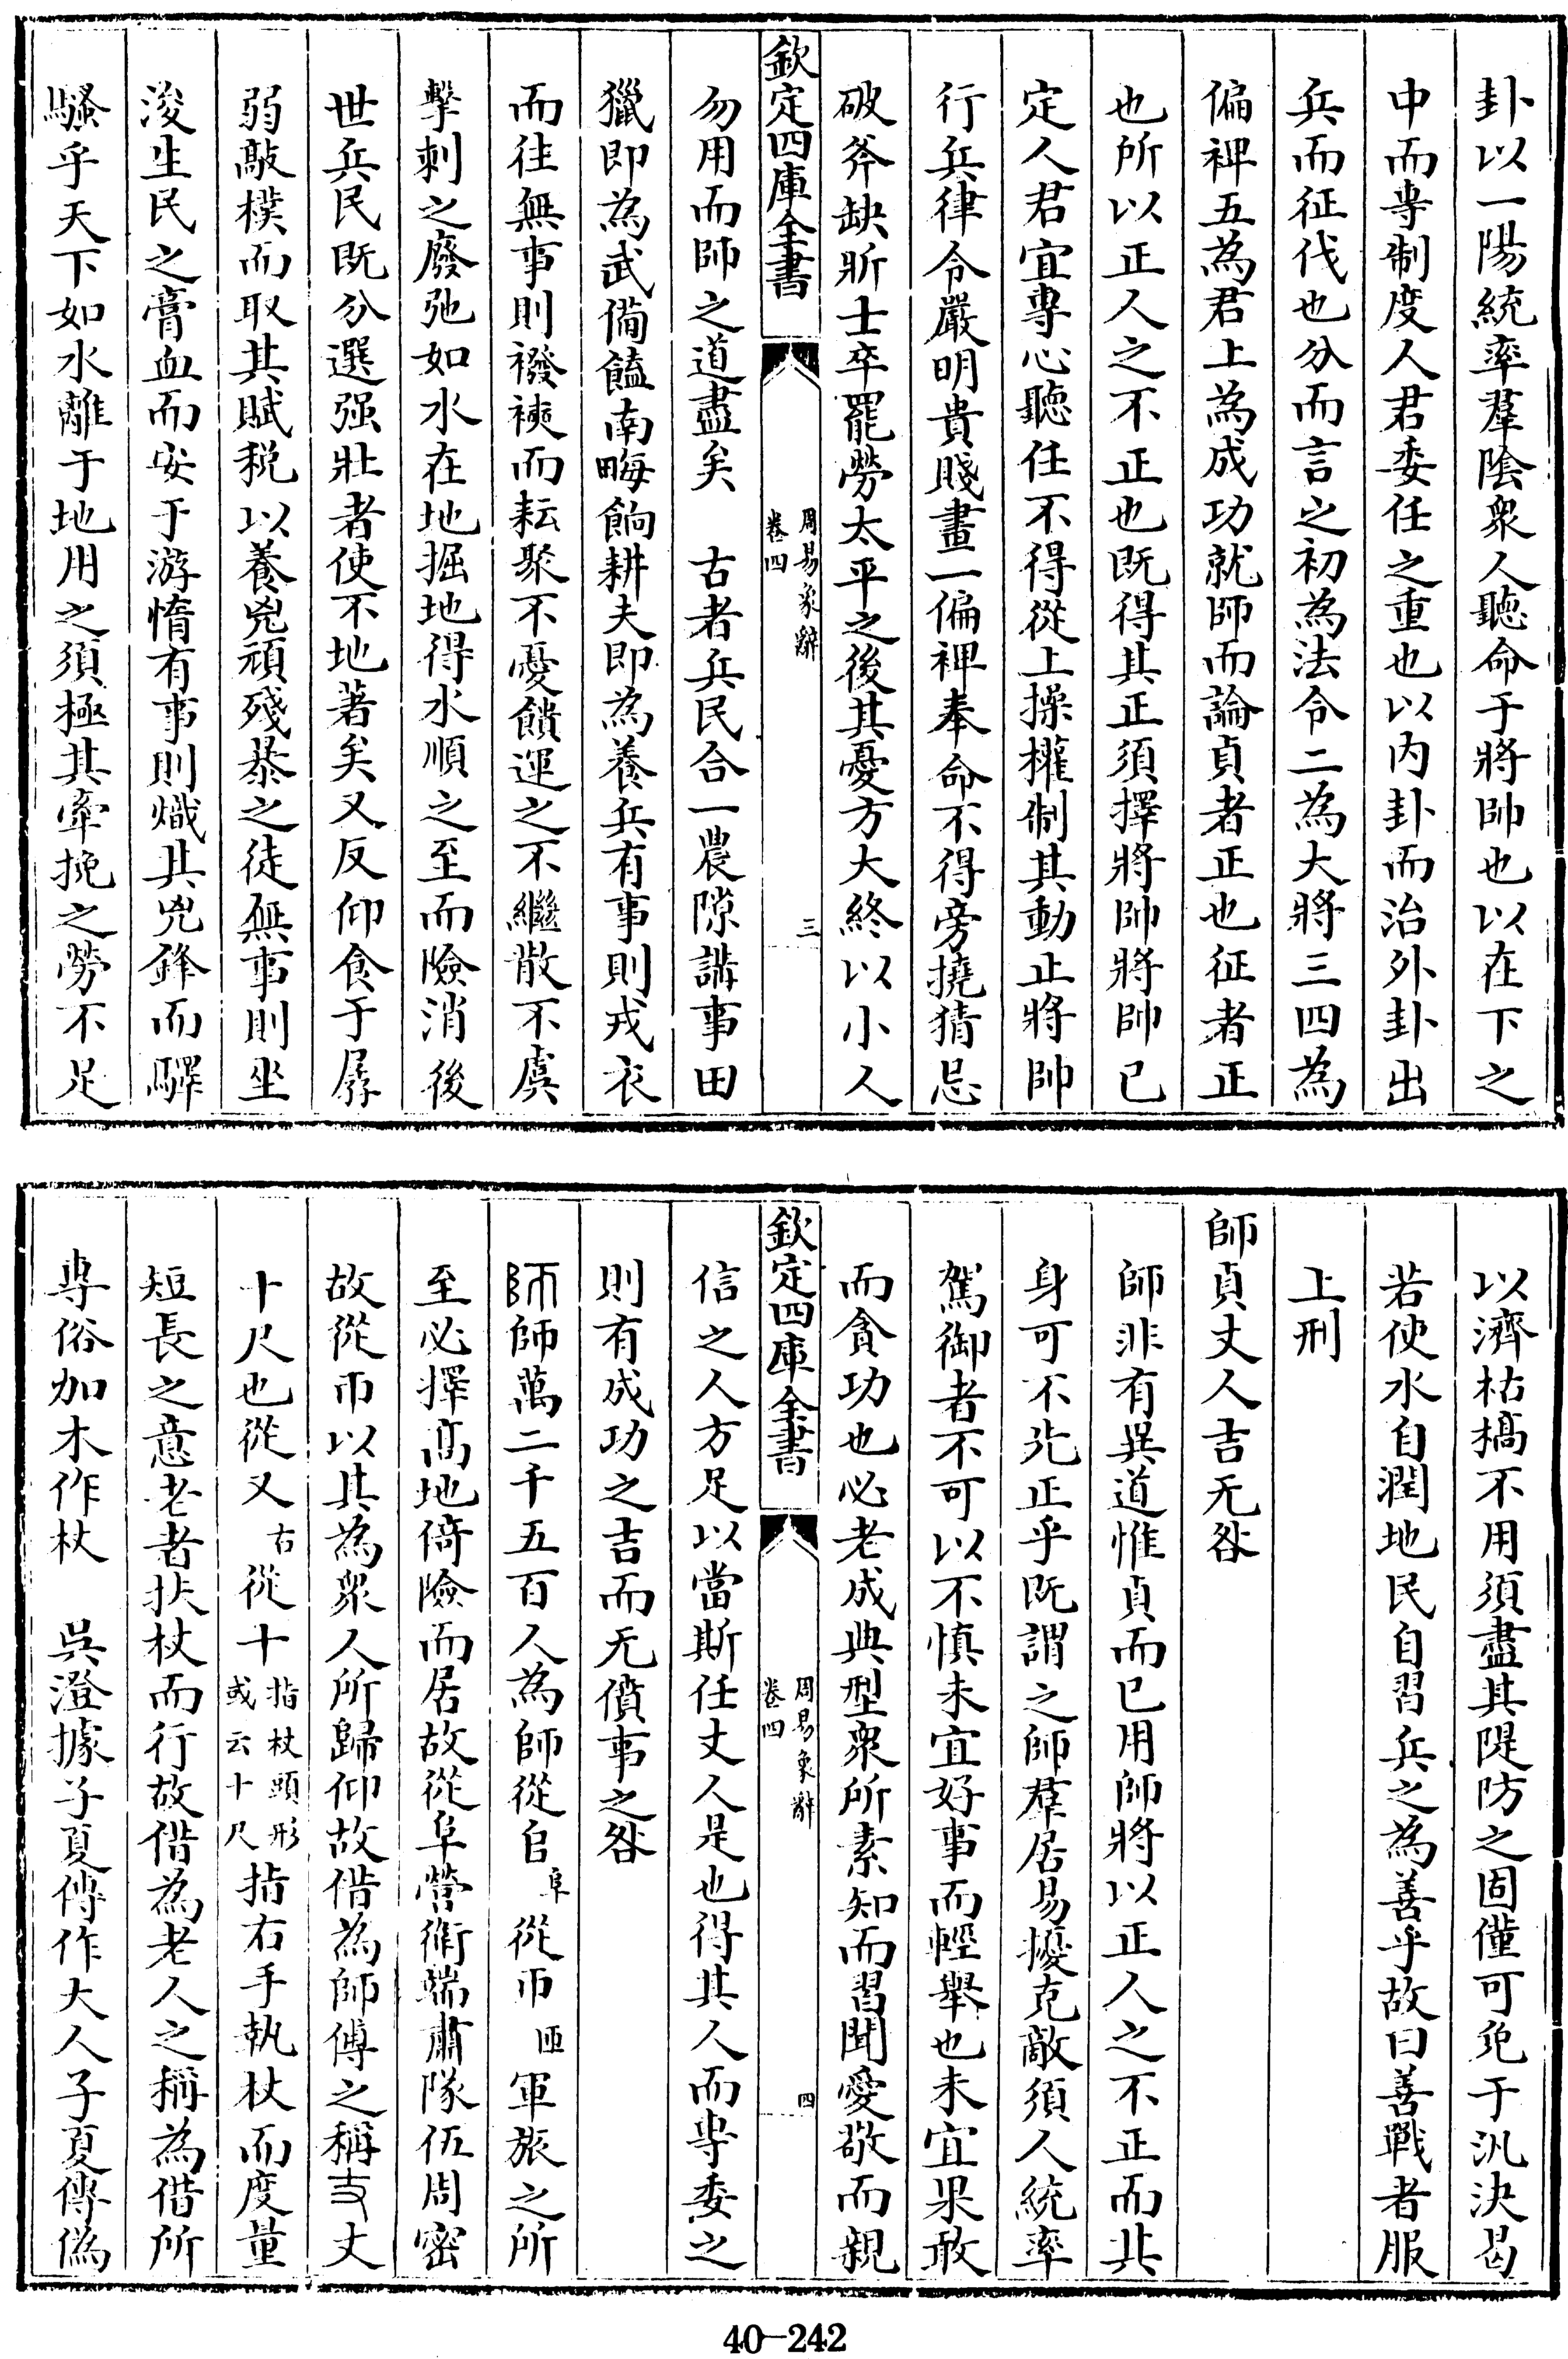 卦以一陽統率羣陰衆人聽命于將帥也以在下之
中而專制度人君委任之重也以内卦而治外卦出
兵而征伐也分而言之初為法令二為大將三四為
偏裨五為君上為成功就師而論貞者正也征者正
也所以正人之不正也既得其正須擇將帥將帥已
定人君宜專心聽任不得從上操權制其動止將帥
行兵律令嚴明貴賤畫一偏裨奉命不得旁撓猜忌
破斧缺斨士卒罷勞太平之後其憂方大終以小人
欽定四庫全書
周易象辭
卷四
三
勿用而師之道盡矣　古者兵民合一農隙講事田
獵即為武備饁南畮餉耕夫即為養兵有事則戎衣
而往無事則襏襫而耘聚不憂饋運之不繼散不虞
擊刺之廢弛如水在地掘地得水順之至而險消後
世兵民既分選强壯者使不地著矣又反仰食于孱
弱敲樸而取其賦税以養兇頑殘暴之徒無事則坐
浚生民之膏血而安于游惰有事則熾其兇鋒而驛
騷乎天下如水離于地用之須極其牽挽之勞不足
以濟枯槁不用須盡其隄防之固僅可免于汎決曷
若使水自潤地民自習兵之為善乎故曰善戰者服
上刑
師貞丈人吉无咎
師非有異道惟貞而已用師將以正人之不正而其
身可不先正乎既謂之師羣居易擾克敵須人統率
駕御者不可以不慎未宜好事而輕舉也未宜果敢
而貪功也必老成典型衆所素知而習聞愛敬而親
欽定四庫全書
周易象辭
卷四
四
信之人方足以當斯任丈人是也得其人而專委之
則有成功之吉而无僨事之咎
師師萬二千五百人為師從𠂤阜從帀匝軍旅之所
至必擇髙地倚險而居故從阜營衛端肅隊伍周密
故從帀以其為衆人所歸仰故借為師傅之稱丈丈
十尺也從又右從十指杖頭形或云十尺指右手執杖而度量
短長之意老者扶杖而行故借為老人之稱為借所
專俗加木作杖　吳澄據子夏傳作大人子夏傳偽
40-242